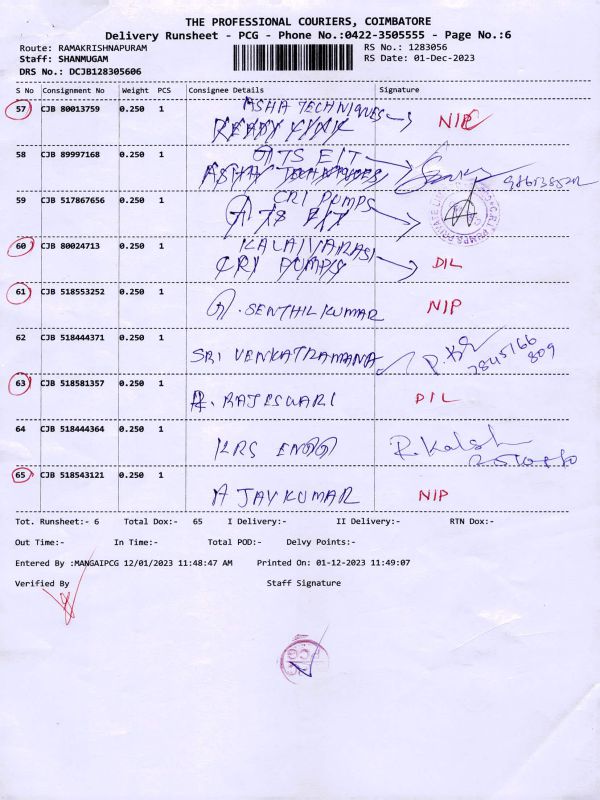 THE PROFESSIONAL COURIERS, COIMBATORE
Delivery Runsheet - PCG - Phone No.:0422-3505555 - Page No.:6
Route: RAMAKRISHNAPURAM RS No.: 1283056
Staff: SHANMUGAM RS Date: 01-Dec-2023
DRS No.: DCJB128305606
S No Consignment No Weight PCS Consignee Details Signature
57 CJB 80013759 0.250 1 ASHA TECHNIQUES NIP
58 CJB 89997168 0.250 1 TS EIT
ASHA TECHNIQUES
59 CJB 517867656 0.250 1 CRI PUMPS
TS EIT
60 CJB 80024713 0.250 1 KALAIVARASI
CRI PUMPS DIL
61 CJB 518553252 0.250 1
SENTHIL KUMAR NIP
62 CJB 518444371 0.250 1
SRI VENKATRAMANA
63 CJB 518581357 0.250 1
R. RAJESWARI DIL
64 CJB 518444364 0.250 1
KRS ENGG
65 CJB 518543121 0.250 1
A JAYKUMAR NIP
Tot. Runsheet:- 6 Total Dox:- 65 I Delivery:- II Delivery:- RTN Dox:-
Out Time:- In Time:- Total POD:- Delvy Points:-
Entered By :MANGAIPCG 12/01/2023 11:48:47 AM Printed On: 01-12-2023 11:49:07
Verified By Staff Signature